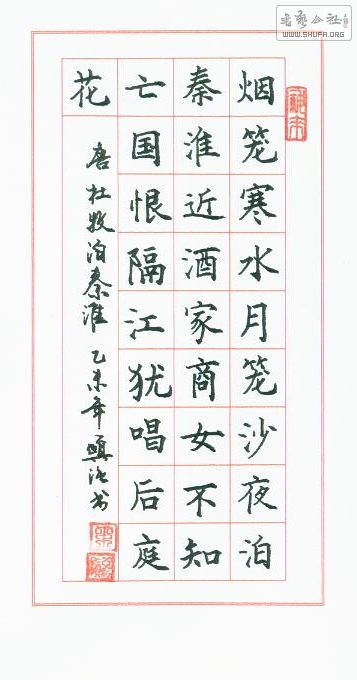 烟笼寒水月笼沙夜泊
秦淮近酒家商女不知
亡国恨隔江犹唱后庭
花
唐杜牧泊秦淮 乙未年
书
WWW.SHUFA.ORG